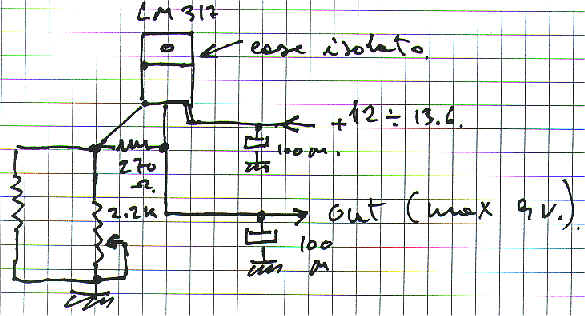 LM 317
case isolato.
+12 ÷ 13.6.
100 m.
270
Ω
2.2K
out (max 9V.)
100
M